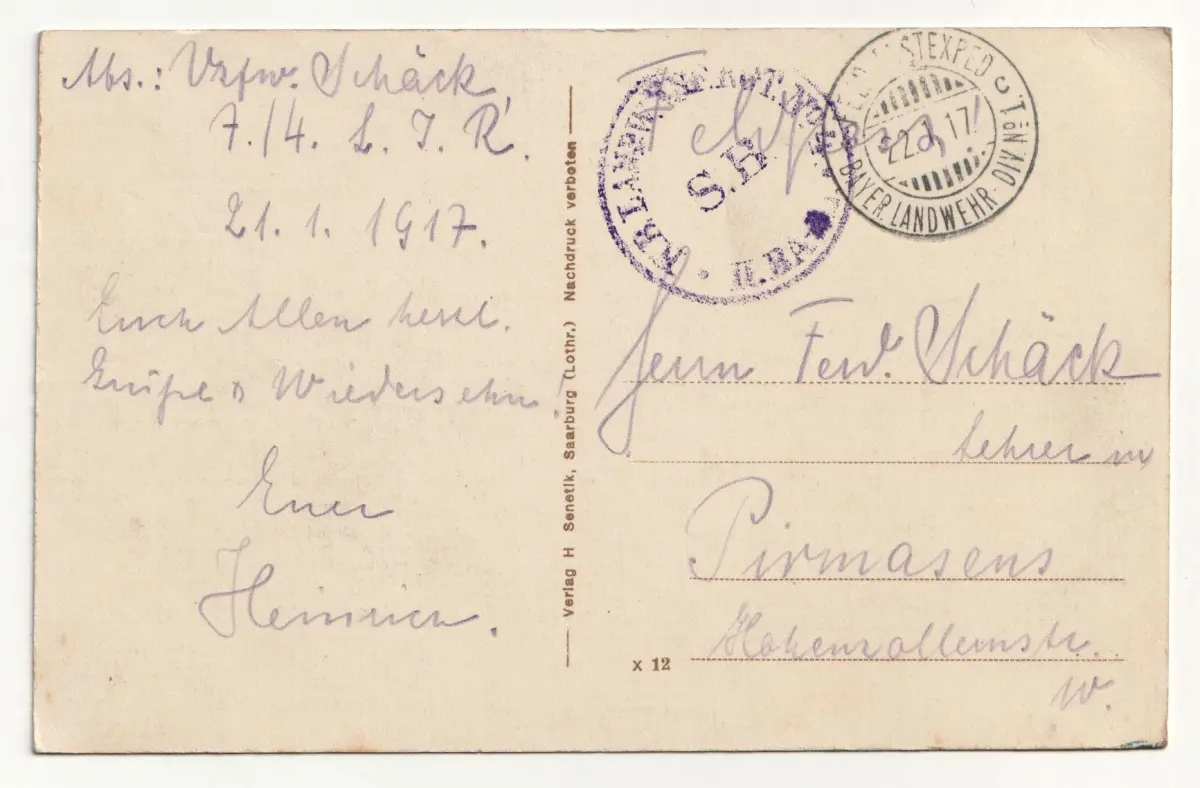 Abs.: Vzfw. Schäck
7./4. L. I. R.
21.1.1917.
Euch Allen herzl.
Grüße u Wiedersehn!
Euer
Heinrich.
Verlag H Senetik, Saarburg (Lothr.) Nachdruck verboten
K.B. LANDW. INF. RGT. No 4
S.B
II. BA
Feldpost!
FELDPOSTEXPED
BAYER. LANDWEHR-DIVISION
22.1.17
Herrn Ferd. Schäck
Lehrer in
Pirmasens
Hohenzollernstr.
x 12